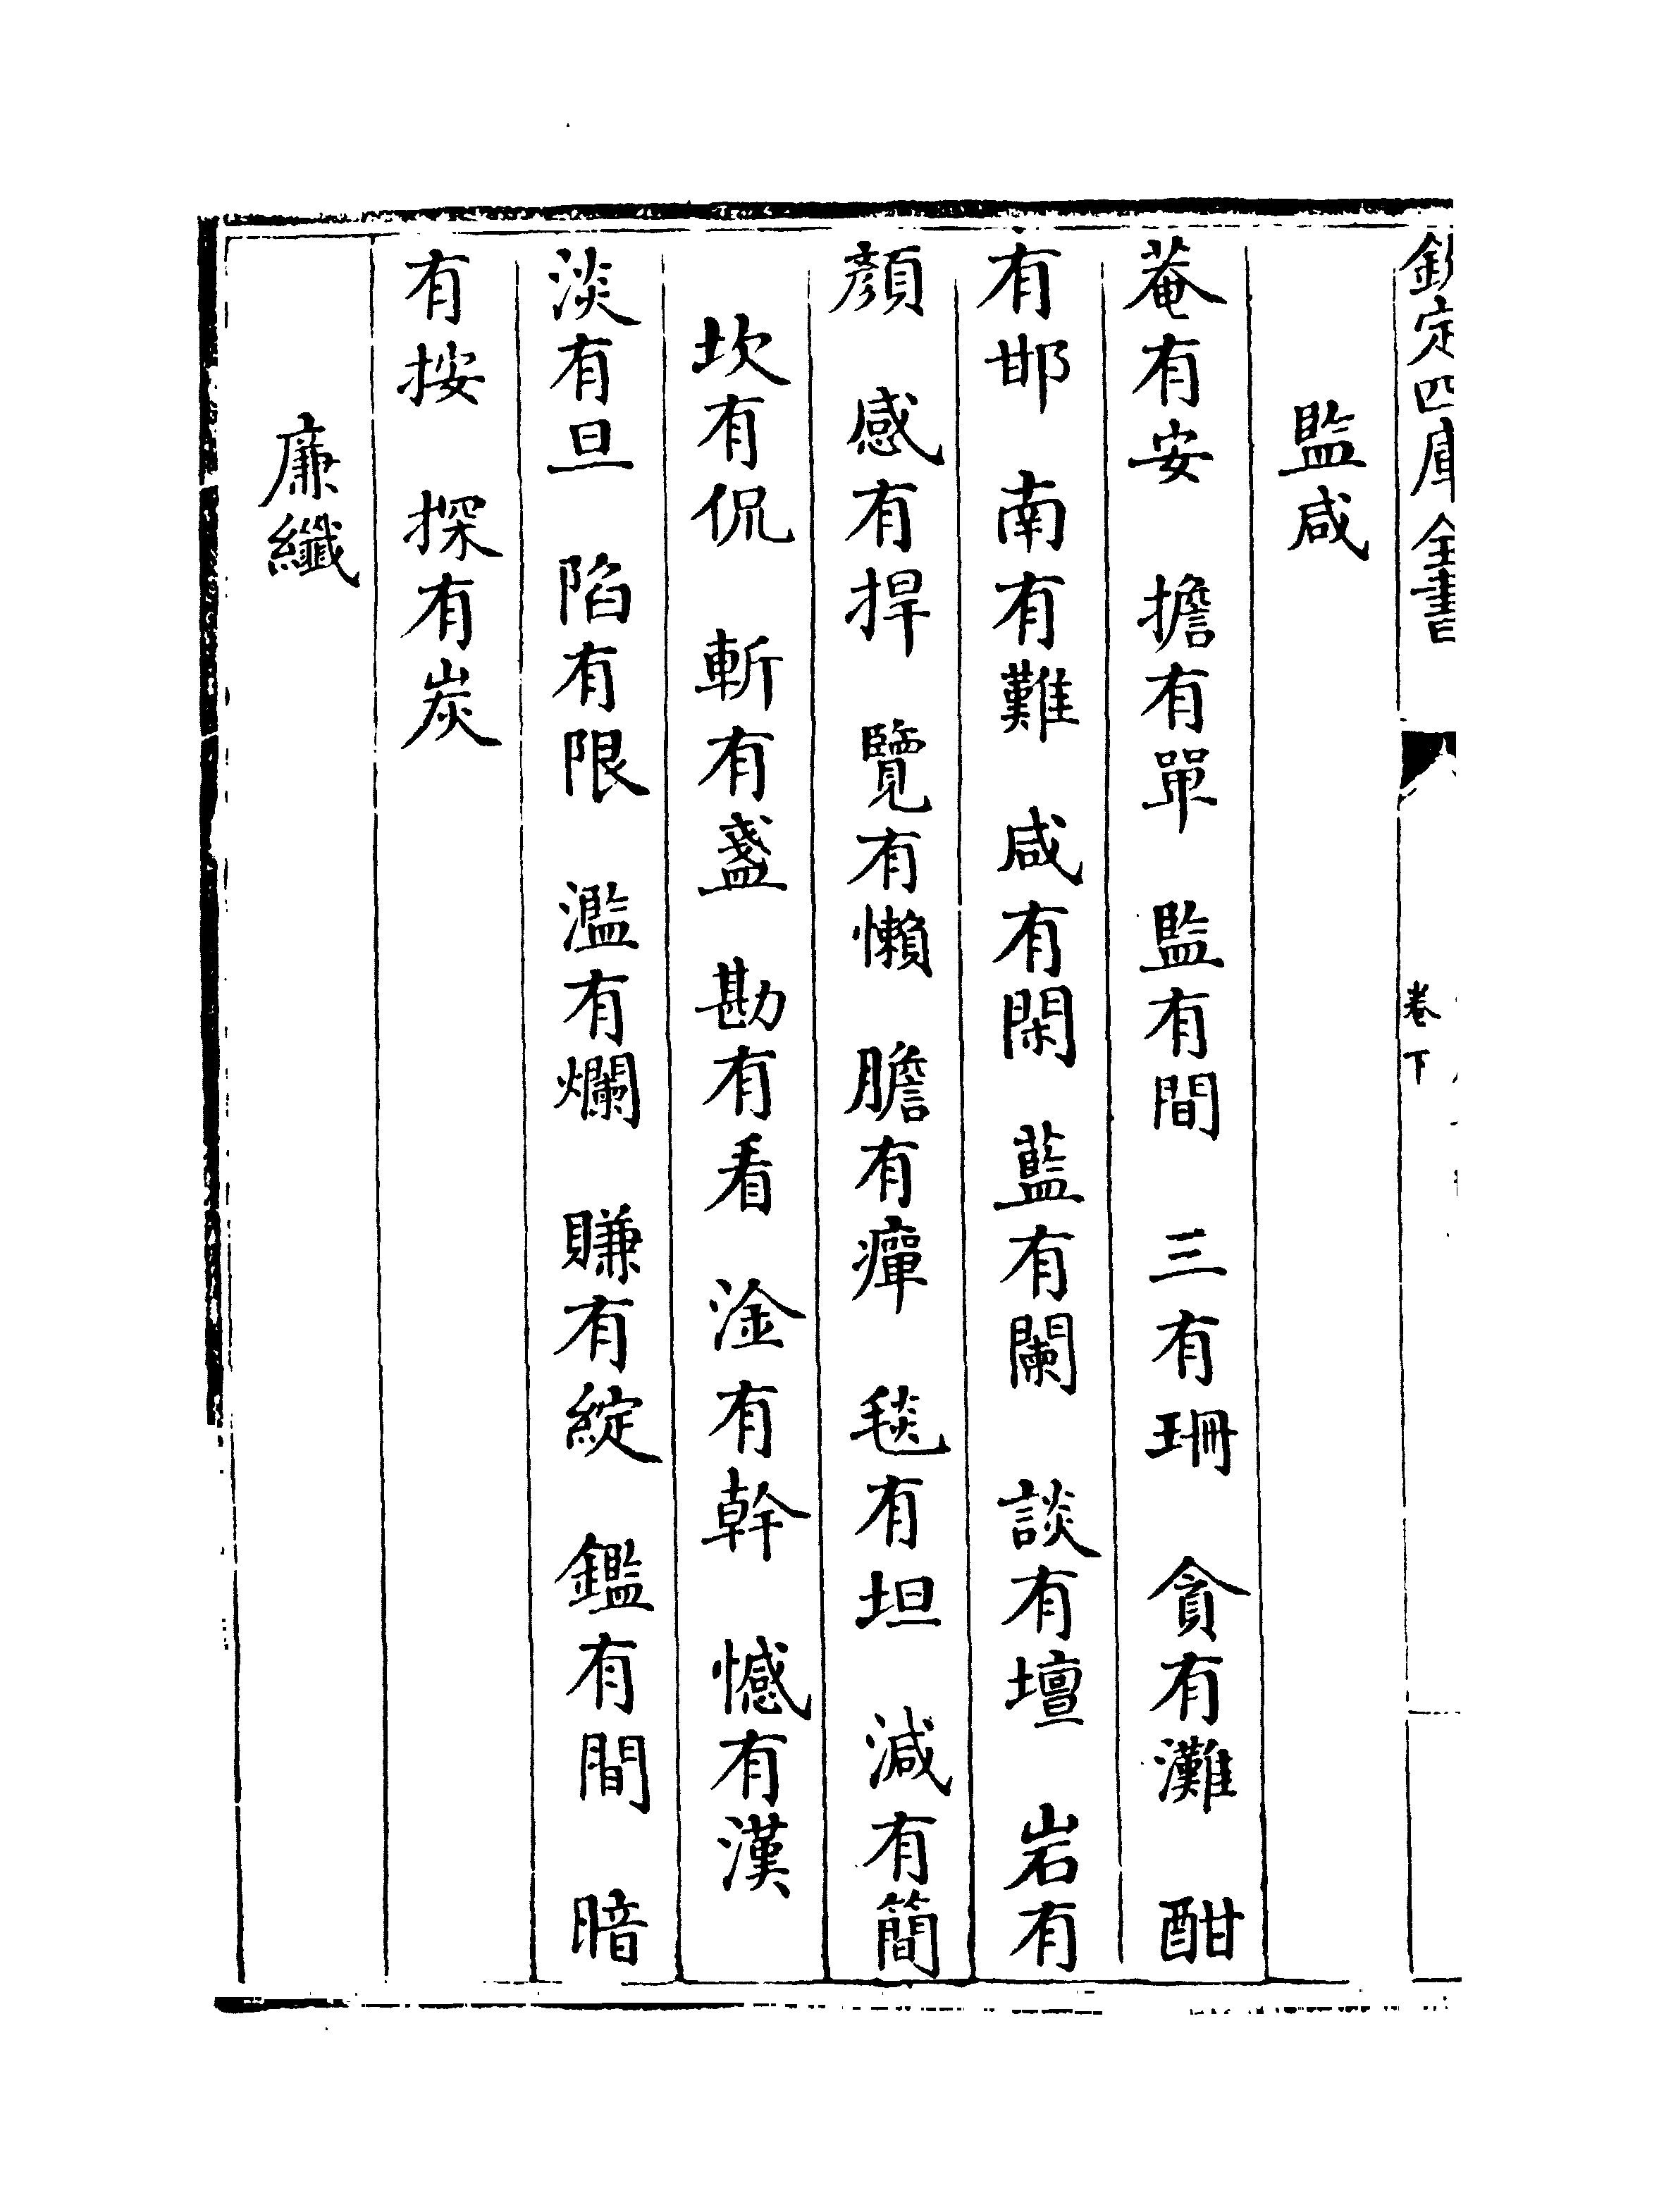 欽定四庫全書 卷下
監咸
菴有安 擔有單 監有間 三有珊 貪有灘 酣
有邯 南有難 咸有閑 藍有闌 談有壇 岩有
顔 感有捍 覽有懶 膽有癉 毯有坦 減有簡
坎有侃 斬有盞 勘有看 淦有幹 憾有漢
淡有旦 陷有限 濫有爛 賺有綻 鑑有間 暗
有按 探有炭
廉纖